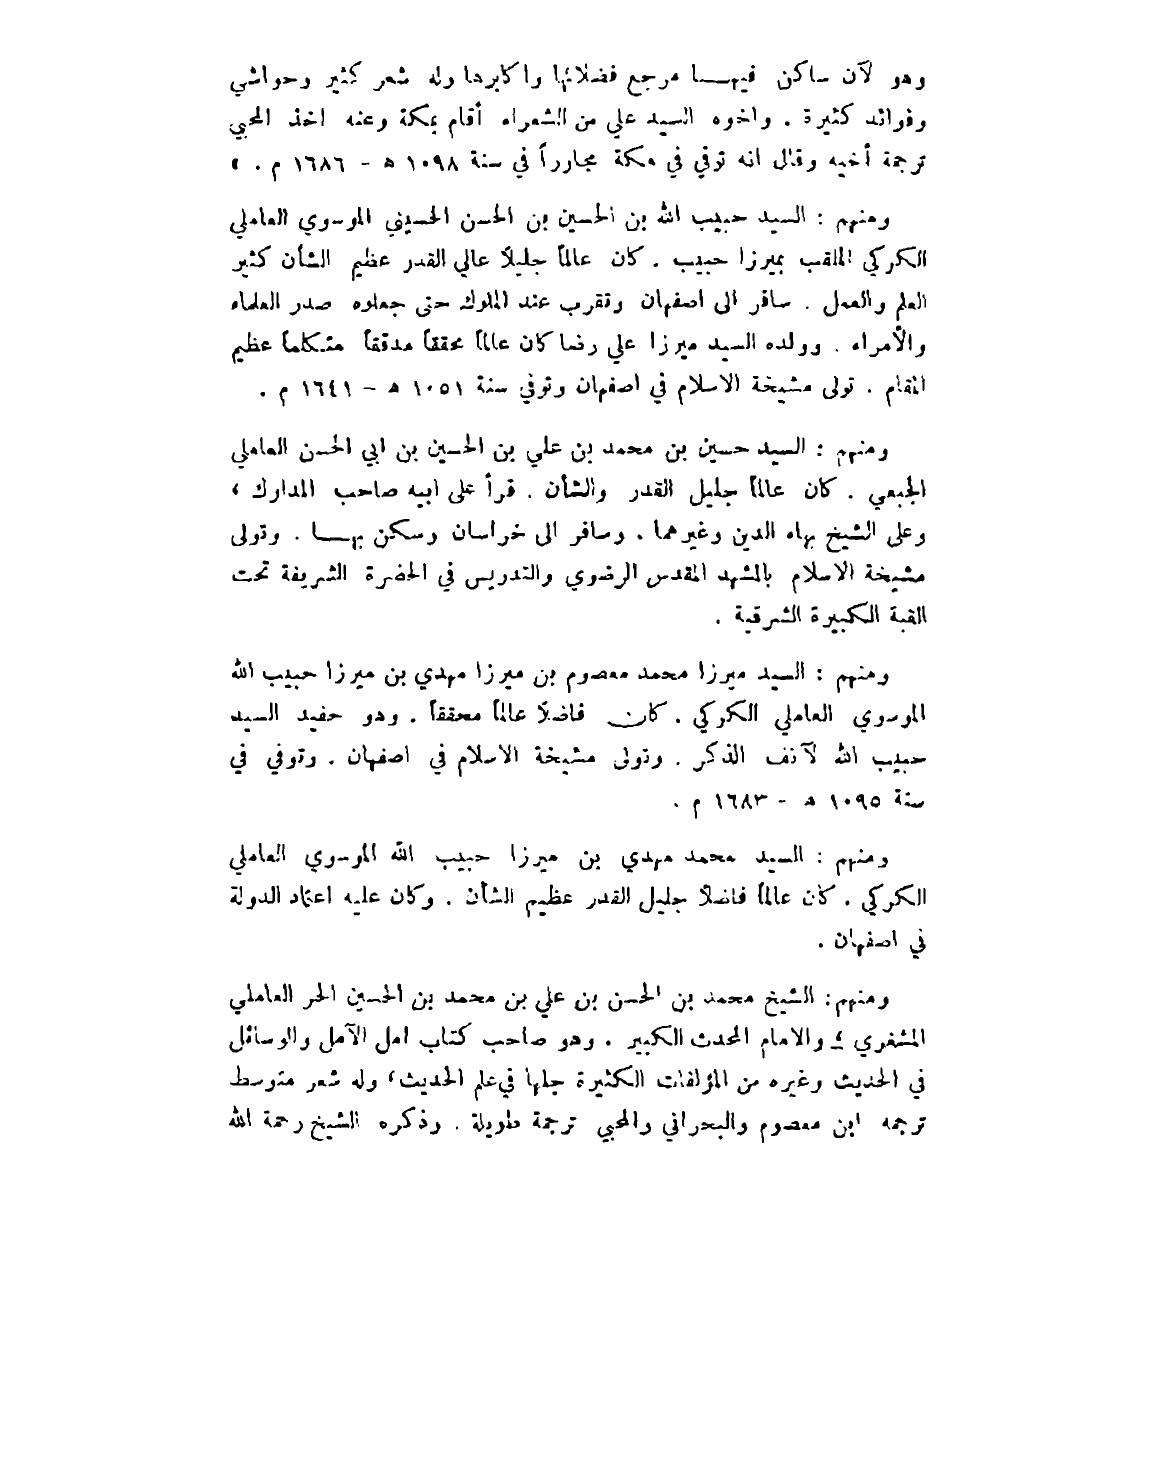 وهو لآن ساكن فيهـــا مرجع فضلائها واكابرها وله شعر كثير وحواشي
وفوائد كثيرة . واخوه السيد علي من الشعراء أقام بمكة وعنه اخذ المحبي
ترجمة أخيه وقال انه توفي في مكة مجاوراً في سنة ١٠٩٨ ه - ١٦٨٦ م . »
ومنهم : السيد حبيب الله بن الحسين بن الحسن الحسيني الموسوي العاملي
الكركي الملقب بميرزا حبيب . كان عالماً جليلاً عالي القدر عظيم الشأن كثير
العلم والعمل . سافر الى اصفهان وتقرب عند الملوك حتى جعلوه صدر العلماء
والأمراء . وولده السيد ميرزا علي رضا كان عالماً محققاً مدققاً متكلماً عظيم
المقام . تولى مشيخة الاسلام في اصفهان وتوفي سنة ١٠٥١ ه - ١٦٤١ م .
ومنهم : السيد حسين بن محمد بن علي بن الحسين بن ابي الحسن العاملي
الجبعي . كان عالماً جليل القدر والشأن . قرأ على ابيه صاحب المدارك ،
وعلى الشيخ بهاء الدين وغيرهما . وسافر الى خراسان وسكن بهـــا . وتولى
مشيخة الاسلام بالمشهد المقدس الرضوي والتدريس في الحضرة الشريفة تحت
القبة الكبيرة الشرقية .
ومنهم : السيد ميرزا محمد معصوم بن ميرزا مهدي بن ميرزا حبيب الله
الموسوي العاملي الكركي . كان فاضلاً عالماً محققاً . وهو حفيد السيد
حبيب الله لآنف الذكر . وتولى مشيخة الاسلام في اصفهان . وتوفي في
سنة ١٠٩٥ ه - ١٦٨٣ م .
ومنهم : السيد محمد مهدي بن ميرزا حبيب الله الموسوي العاملي
الكركي . كان عالماً فاضلاً جليل القدر عظيم الشأن . وكان عليه اعتماد الدولة
في اصفهان .
ومنهم : الشيخ محمد بن الحسن بن علي بن محمد بن الحسين الحر العاملي
المشغري ؛ والامام المحدث الكبير . وهو صاحب كتاب امل الآمل والوسائل
في الحديث وغيره من المؤلفات الكثيرة جلها في علم الحديث، وله شعر متوسط
ترجمه ابن معصوم والبحراني والمحبي ترجمة طويلة . وذكره الشيخ رحمة الله